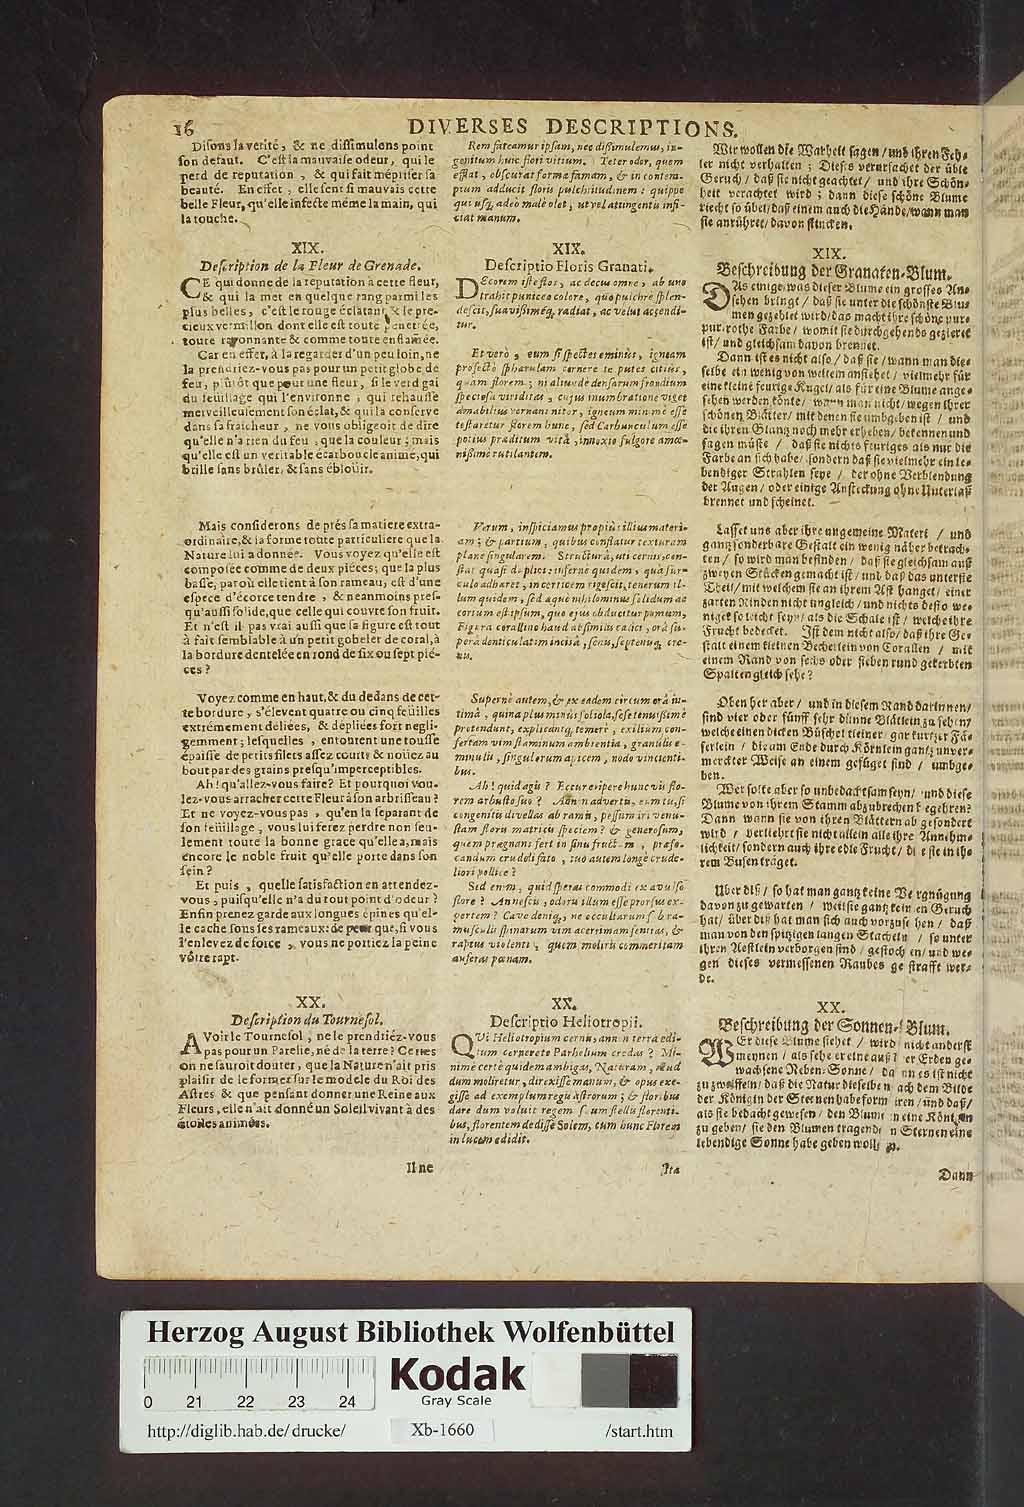 16
DIVERSES DESCRIPTIONS.
Diſons la verité, & ne diſſimulons point
ſon defaut. C'eſt la mauvaiſe odeur, qui le
perd de reputation, & qui fait mépriſer ſa
beauté. En effet, elle ſent ſi mauvais cette
belle Fleur, qu'elle infecte méme la main, qui
la touche.
XIX.
Deſcription de la Fleur de Grenade.
CE qui donne de la reputation à cette fleur,
& qui la met en quelque rang parmi les
plus belles, c'eſt le rouge éclatant, & le pre-
cieux vermillon dont elle eſt toute penetrée,
toute rayonnante & comme toute enflamée.
Car en effet, à la regarder d'un peu loin, ne
la prendriez-vous pas pour un petit globe de
feu, plûtôt que pour une fleur, ſi le verd gai
du feüillage qui l'environne, qui rehauſſe
merveilleuſement ſon éclat, & qui la conſerve
dans ſa fraicheur, ne vous obligeoit de dire
qu'elle n'a rien du feu, que la couleur; mais
qu'elle eſt un veritable écarboucle animé, qui
brille ſans brûler, & ſans éblouïr.
Mais conſiderons de prés ſa matiere extra-
ordinaire, & la forme toute particuliere que la
Nature lui a donnée. Vous voyez qu'elle eſt
compoſée comme de deux piéces; que la plus
baſſe, par où elle tient à ſon rameau, eſt d'une
eſpece d'écorce tendre, & neanmoins preſ-
qu'auſſi ſolide, que celle qui couvre ſon fruit.
Et n'eſt il pas vrai auſſi que ſa figure eſt tout
à fait ſemblable à un petit gobelet de coral, à
la bordure dentelée en rond de ſix ou ſept pié-
ces?
Voyez comme en haut, & du dedans de cet-
te bordure, s'élevent quatre ou cinq feüilles
extrémement déliées, & dépliées fort negli-
gemment; leſquelles, entourent une touſſe
épaiſſe de petits filets aſſez courts & noüez au
bout par des grains preſqu'imperceptibles.
Ah! qu'allez-vous faire? Et pourquoi vou-
lez-vous arracher cette Fleur à ſon arbriſſeau?
Et ne voyez-vous pas, qu'en la ſeparant de
ſon feüillage, vous lui ferez perdre non ſeu-
lement toute la bonne grace qu'elle a, mais
encore le noble fruit qu'elle porte dans ſon
ſein?
Et puis, quelle ſatisfaction en attendez-
vous, puiſqu'elle n'a du tout point d'odeur?
Enfin prenez garde aux longues épines qu'el-
le cache ſous ſes rameaux: de peur que, ſi vous
l'enlevez de force, vous ne portiez la peine
vôtre rapt.
XX.
Deſcription du Tourneſol.
A Voir le Tourneſol, ne le prendriéz-vous
pas pour un Parelie, né de la terre? Certes
on ne ſauroit douter, que la Nature n'ait pris
plaiſir de le former ſur le modele du Roi des
Aſtres & que penſant donner une Reine aux
Fleurs, elle n'ait donné un Soleil vivant à des
étoiles animées.
Il ne
Rem fateamur ipſam, nec diſſimulemus, in-
genitum hunc flori vitium. Teter odor, quem
efflat, obſcurat formæ famam, & in contem-
ptum adducit floris pulchritudinem: quippe
qui uſq, adeò malè olet, ut vel attingentis infi-
ciat manum.
XIX.
Deſcriptio Floris Granati.
DEcorem iſte flos, ac decus omne, ab uno
trahit puniceo colore, quo pulchrè ſplen-
deſcit, ſuaviſſiméq, radiat, ac velut accendi-
tur.
Et verò, eum ſi ſpectes eminùs, igneam
profectò ſphærulam cernere te putes citiùs,
quàm florem; ni aliunde denſarum frondium
ſpecioſa viriditas, cujus inumbratione viget
amabilius vernans nitor, igneum minimè eſſe
teſtaretur florem hunc, ſed Carbunculum eſſe
potius præditum vitâ, innoxio fulgore amœ-
niſſimè rutilantem.
Verum, inſpiciamus propiùs illius materi-
am; & partium, quibus conſtatur texturam
planè ſingularem. Structurâ, uti cernis, con-
ſtat quaſi duplici: infernè quidem, quâ ſur-
culo adhæret, in corticem rigeſcit, tenerum il-
lum quidem, ſed æquè nihilominus ſolidum ac
corium eſt ipſum, quo ejus obducitur pomum.
Figura corallino haud abſimilis calici, orâ ſu-
perâ denticulatim incisâ, ſenis, ſeptenisq, cre-
nis.
Supernè autem, & ex eadem circum orâ in-
timâ, quina plus minùs foliola, ſeſe tenuiſſimè
protendunt, explicantq, temerè, exilium con-
fertam vim ſtaminum ambientia, granulis e-
minulis, ſingulorum apicem, nodo vincienti-
bus.
Ah! quid agis? Ecture eripere hunc vis flo-
rem arbuſto ſuo? An non advertis, eum tu, ſi
congenitis divellas ab ramis, peſſum iri venu-
ſtam floris matricis ſpeciem? & generoſum,
quem prægnans fert in ſinu fructum, præfo-
candum crudeli fato, tuo autem longè crude-
liori pollice?
Sed enim, quid ſperas commodi ex avulſo
flore? An neſcis, odoris illum eſſe prorſus ex-
pertem? Cave deniq, ne occultarum ſub ra-
muſculis ſpinarum vim acerrimam ſentias, &
raptus violenti, quem moliris commeritam
auferas pœnam.
XX.
Deſcriptio Heliotropii.
QVi Heliotropium cernis, annon terra edi-
tum cernere te Parhelium credas? Mi-
nimè certè quidem ambigas, Naturam, illud
dum moliretur, direxiſſe manum, & opus exe-
giſſe ad exemplum regis Aſtrorum; & floribus
dare dum voluit regem ſuum ſtellis florenti-
bus, florentem dediſſe Solem, cum hunc Florem
in lucem edidit.
Ita
Wir wollen die Warheit ſagen/ und ihren Feh-
ler nicht verhalten; Dieſes verurſachet der üble
Geruch/ daß ſie nicht geachtet/ und ihre Schön-
heit verachtet wird; dann dieſe ſchöne Blume
riecht ſo übel/ daß einem auch die Hände/ wann man
ſie anrühret/ davon ſtincken.
XIX.
Beſchreibung der Granaten-Blum.
DAs einige was dieſer Blume ein groſſes An-
ſehen bringt/ daß ſie unter die ſchönſte Blu-
men gezehlet wird/ das macht ihre ſchöne pur-
purrothe Farbe/ womit ſie durchgehends gezieret
iſt/ und gleichſam davon brennet.
Dann iſt es nicht alſo/ daß ſie/ wann man die-
ſelbe ein wenig von weitem anſiehet/ vielmehr für
eine kleine feurige Kugel/ als für eine Blume ange-
ſehen werden könte/ wann man nicht/ wegen ihrer
ſchönen Blätter/ mit denen ſie umgeben iſt/ und
die ihren Glantz noch mehr erheben/ bekennen und
ſagen müſte/ daß ſie nichts feuriges als nur die
Farbe an ſich habe/ ſondern daß ſie vielmehr ein le-
bendiger Strahlen ſeye/ der ohne Verblendung
der Augen/ oder einige Anſteckung ohne Unterlaß
brennet und ſcheinet.
Laſſet uns aber ihre ungemeine Materi/ und
gantz ſonderbare Geſtalt ein wenig näher betrach-
ten/ ſo wird man befinden/ daß ſie gleichſam auß
zweyen Stücken gemacht iſt/ und daß das unterſte
Theil/ mit welchem ſie an ihrem Aſt hanget/ einer
zarten Rinden nicht ungleich/ und nichts deſto we-
niger ſo leicht ſeye/ als die Schale iſt/ welche ihre
Frucht bedecket. Iſt dem nicht alſo/ daß ihre Ge-
ſtalt einem kleinen Becherlein von Corallen/ mit
einem Rand von ſechs oder ſieben rund gekerbten
Spalten gleich ſehe?
Oben her aber/ und in dieſem Rand darinnen/
ſind vier oder fünff ſehr dünne Blätlein zu ſehen/
welche einen dicken Büſchel kleiner gar kurtzer Fä-
ſerlein/ die am Ende durch Körnlein gantz unver-
merckter Weiſe an einem gefüget ſind/ umbge-
ben.
Wer ſolte aber ſo unbedachtſam ſeyn/ und dieſe
Blume von ihrem Stamm abzubrechen begehren?
Dann wann ſie von ihren Blättern abgeſondert
wird/ verliehrt ſie nicht allein alle ihre Annehm-
lichkeit/ ſondern auch ihre edle Frucht/ die ſie in ih-
rem Buſen träget.
Uber diß/ ſo hat man gantz keine Vergnügung
davon zu gewarten/ weil ſie gantz keinen Geruch
hat/ über diß hat man ſich auch vorzuſehen/ daß
man von den ſpitzigen langen Stacheln/ ſo unter
ihren Aeſtlein verborgen ſind/ geſtochen/ und we-
gen dieſes vermeſſenen Raubes geſtrafft wer-
de.
XX.
Beſchreibung der Sonnen-Blum.
WEr dieſe Blume ſiehet/ wird nicht anderſt
meynen/ als ſehe er eine auß der Erden ge-
wachſene Neben-Sonne/ dann es iſt nicht
zu zweiffeln/ daß die Natur dieſelbe nach dem Bilde
der Königin der Sternen habe formiren/ und daß/
als ſie bedacht geweſen/ den Blumen eine Königin
zu geben/ ſie den Blumen tragenden Sternen eine
lebendige Sonne habe geben wollen.
Dann
Herzog August Bibliothek Wolfenbüttel
0 21 22 23 24
Kodak
Gray Scale
http://diglib.hab.de/drucke/
Xb-1660
/start.htm